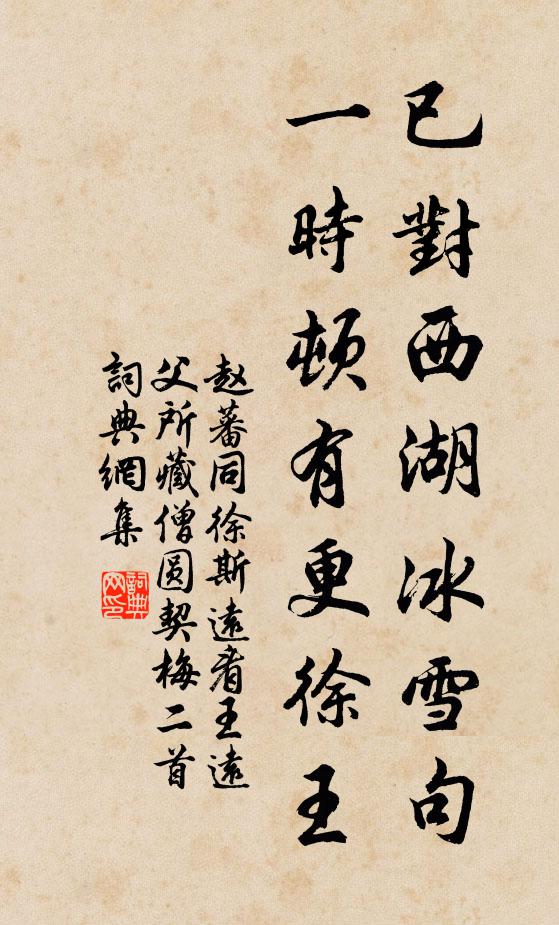 已對西湖冰雪句
一時頓有更徐王
赵蕃同徐斯遠看王遠
父所藏僧圆契梅二首
詞典網集
詞典
网印